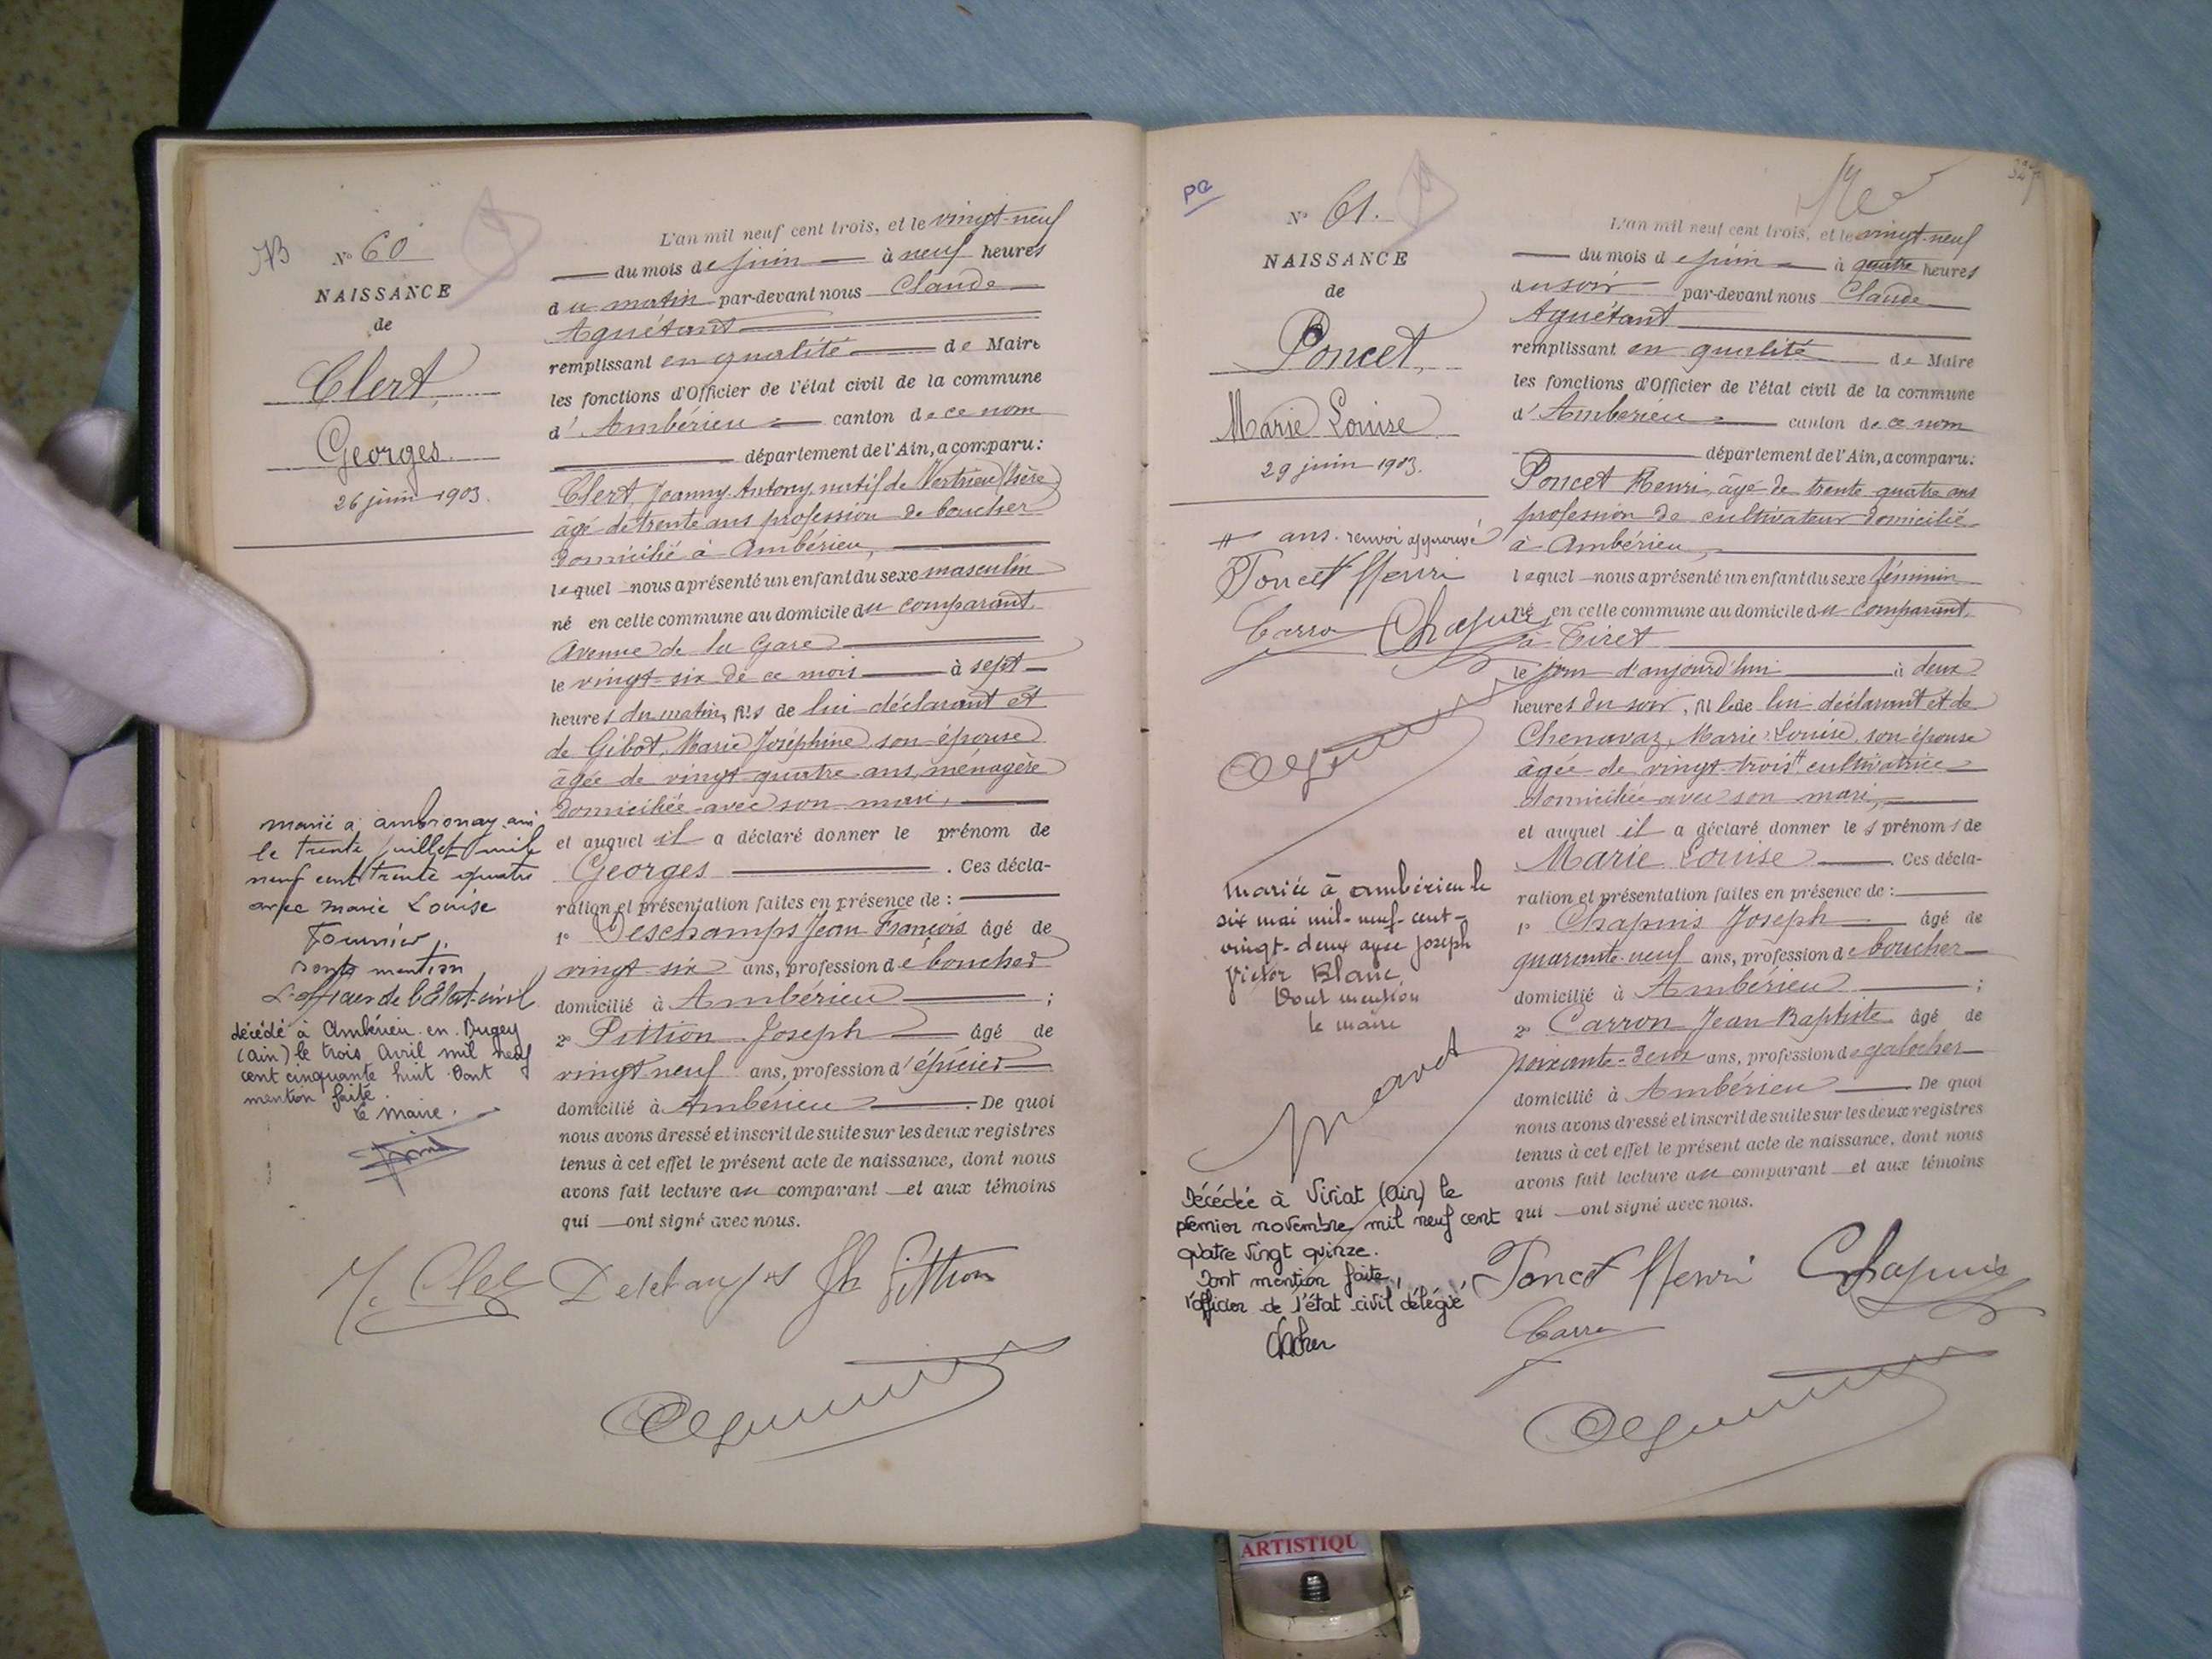 N° 60
NAISSANCE
de
Clert,
Georges.
26 juin 1903.
L'an mil neuf cent trois, et le vingt-neuf
du mois de juin à neuf heures
du matin par-devant nous Claude
Aguétant
remplissant en qualité de Maire
les fonctions d'Officier de l'état civil de la commune
d'Ambérieu canton de ce nom
département de l'Ain, a comparu:
Clert, Joanny Antony, natif de Vertrieu (Isère)
âgé de trente ans profession de boucher
domicilié à Ambérieu,
lequel nous a présenté un enfant du sexe masculin
né en cette commune au domicile du comparant,
Avenue de la Gare
le vingt-six de ce mois à sept
heures du matin, fils de lui déclarant et
de Gibot, Marie Joséphine son épouse
âgée de vingt quatre ans, ménagère
domiciliée avec son mari,
et auquel il a déclaré donner le prénom de
Georges . Ces décla-
ration et présentation faites en présence de :
1° Deschamps Jean François âgé de
vingt-six ans, profession de boucher
domicilié à Ambérieu ;
2° Pittion Joseph âgé de
vingt neuf ans, profession d'épicier
domicilié à Ambérieu . De quoi
nous avons dressé et inscrit de suite sur les deux registres
tenus à cet effet le présent acte de naissance, dont nous
avons fait lecture au comparant et aux témoins
qui ont signé avec nous.
marié à ambronay ain
le trente juillet mil
neuf cent trente quatre
avec marie Louise
Fournier,
dont mention
L'officier de l'État-civil
décédé à Ambérieu-en-Bugey
(ain) le trois Avril mil neuf
cent cinquante huit. Dont
mention faite.
le maire.
Deschamps Jh Pittion
Aguétant
N° 61.
NAISSANCE
de
Poncet,
Marie Louise
29 juin 1903.
L'an mil neuf cent trois, et le vingt-neuf
du mois de juin à quatre heures
du soir par-devant nous Claude
Aguétant
remplissant en qualité de Maire
les fonctions d'Officier de l'état civil de la commune
d'Ambérieu canton de ce nom
département de l'Ain, a comparu:
Poncet Henri, âgé de trente quatre ans
profession de cultivateur domicilié
à Ambérieu,
lequel nous a présenté un enfant du sexe féminin
né, en cette commune au domicile du comparant,
à Tiret
le jour d'aujourd'hui à deux
heures du soir, fille de lui déclarant et de
Chenavaz, Marie Louise, son épouse
âgée de vingt-trois # cultivatrice
domiciliée avec son mari,
et auquel il a déclaré donner les prénoms de
Marie Louise . Ces décla-
ration et présentation faites en présence de :
1° Chapuis Joseph âgé de
quarante-neuf ans, profession de boucher
domicilié à Ambérieu ;
2° Carron Jean Baptiste âgé de
soixante-deux ans, profession de galocher
domicilié à Ambérieu . De quoi
nous avons dressé et inscrit de suite sur les deux registres
tenus à cet effet le présent acte de naissance, dont nous
avons fait lecture au comparant et aux témoins
qui ont signé avec nous.
# ans. renvoi approuvé
Poncet Henri
Carron Chapuis
Aguétant
mariée à ambérieu le
six mai mil-neuf-cent-
vingt-deux avec Joseph
Victor Blanc
Dont mention
le maire
Décédée à Viriat (Ain) le
premier novembre mil neuf cent
quatre vingt quinze.
Dont mention faite,
l'officier de l'état civil délégué,
Poncet Henri Chapuis
Carron
Aguétant
ARTISTIQU